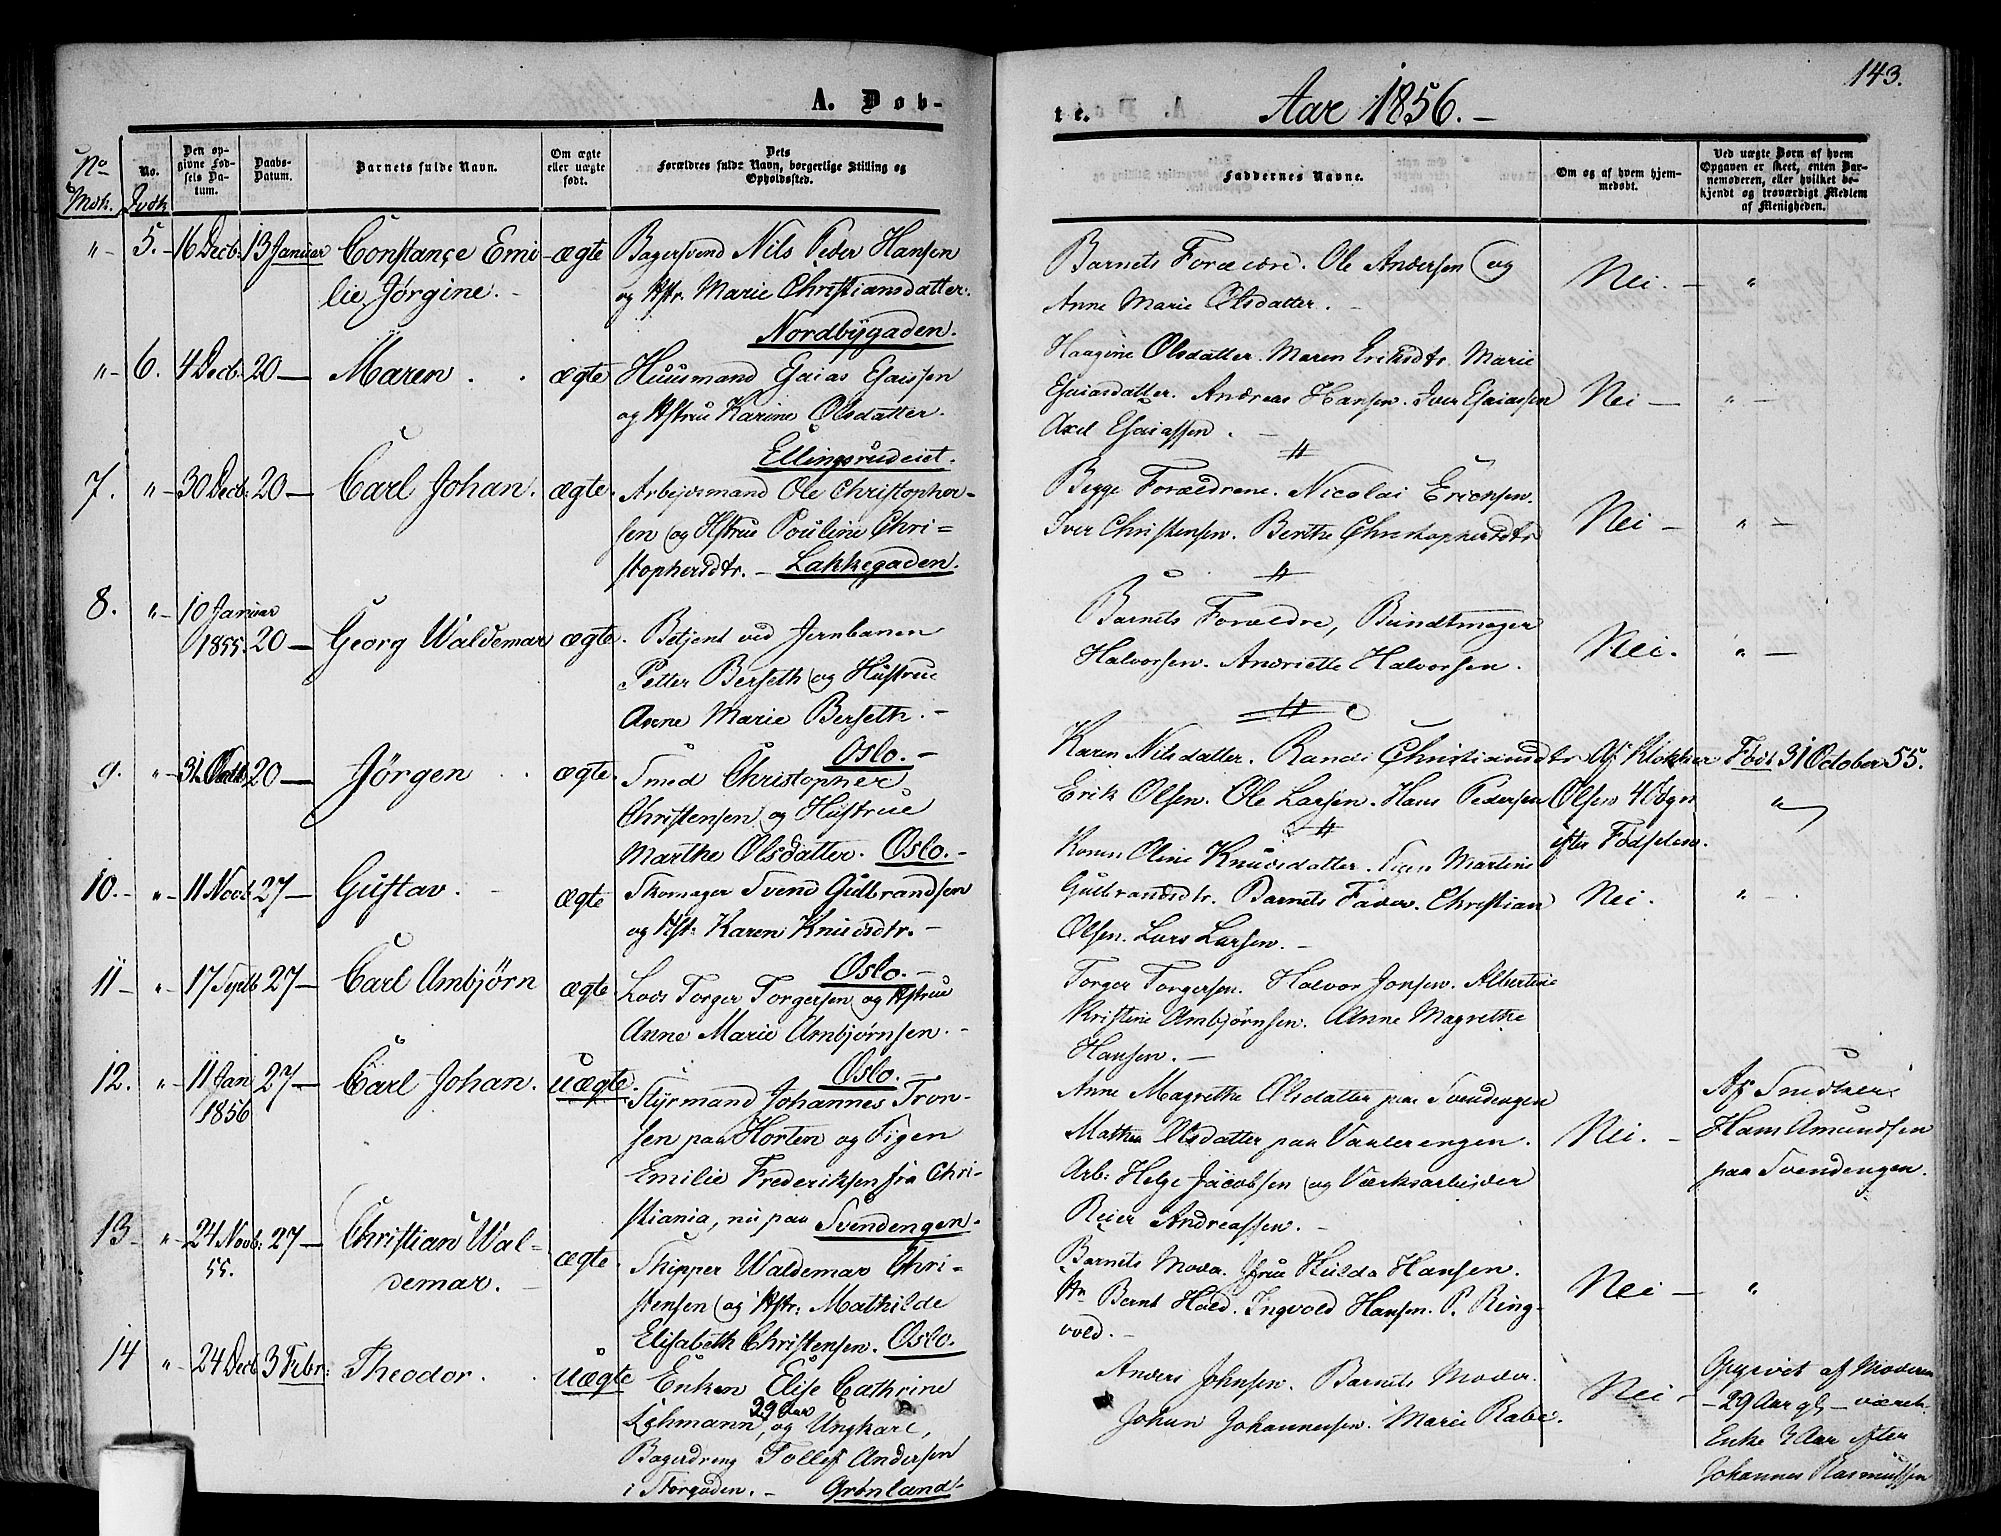 A. Døb-
No
Mdk.
No.
Qvdk
Den op-
givne Fød-
sels Da-
tum.
Daabs-
Datum.
Barnets fulde Navn.
Om ægte
eller uægte
født.
Dets
Forældres fulde Navn, borgerlige Stilling og
Opholdssted.
" 5. 16 Decb. 13 Januar Constançe Emi- ægte Bagersvend Nils Peder Hansen
lie Jørgine. og Hstr. Marie Christiansdatter.
Nordbÿgaden.
" 6. 4 Decb. 20 — Maren. ægte Huusmand Esaias Esaissen
og Hstru Karine Olsdatter.
Ellingsrudeiet.
7. " 30 Decb. 20 — Carl Johan. ægte. Arbejdsmand Ole Christopher-
sen og Hstrue Pouline Chri-
stophersdtr. — Lakkegaden.
8. " 10 Januar
1855. 20 — Georg Waldemar ægte. Betjent ved Jernbanen
Petter Berseth og Hustrue
Anne Marie Berseth. —
Oslo. —
9. " 31 20 — Jörgen ægte. Smed Christopher
Christensen og Hustrue
Marthe Olsdatter. Oslo. —
10. " 11 Novb 27 — Gustav. ægte Skomager Svend Gulbrandsen
og Hst: Karen Knudsdtr. —
Oslo. —
11 " 17 Septb 27 — Carl Ambjörn ægte. Lods Torger Torgersen og Hstrue
Anne Marie Ambjørnsen. —
Oslo. —
12. " 11 Jan
1856 27 — Carl Johan. uægte. Styrmand Johannes Tron-
sen paa Horten og Pigen
Emilie Frederiksen fra Chri-
stiania, nu paa Svendengen.
13 " 24 Novb:
55. 27 — Christian Wal-
demar. — ægte. Skipper Waldemar Chri-
stensen og Hstr: Mathilde
Elisabeth Christensen. Oslo.
14 " 24 Decb 3 Febr: Theodor. uægte Enken Elise Cathrine
Lehmann, 29 Aar og Ungkarl,
Bagerdreng Tollef Andersen
i Storgaden. — Grønland.
te. Aar 1856. —
143.
Faddernes Navne.
Om og af hvem hjem-
medøbt.
Ved uægte Børn af hvem
Opgaven er skeet, enten Bar-
nemoderen, eller hvilket be-
kjendt og troværdigt Medlem
af Menigheden.
Barnets Forældre. Ole Andersen og
Anne Marie Olsdatter. — Nei. — "
Haagine Olsdatter. Maren Eriksdtr. Marie
Esaiasdatter. Andreas Hansen. Iver Esaiassen Nei — " —
Axel Esaiassen. —
Begge Forældrene. Nicolai Ericksen.
Iver Christensen. Berthe Christophersdtr Nei — " —
Barnets Forældre, Bundtmager
Halvorsen. Andriette Halvorsen. Nei. " —
Karen Nilsdatter. Randi Christiansdtr Af Klokker Født 31 October 55.
Erik Olsen. Ole Larsen. Hans Pedersen Olsen 4 Døgn "
efter Fødselen.
Karen Oline Knudsdatter. Martine
Gulbrandsdtr. Barnets Fader. Christian Nei. " —
Olsen. Lars Larsen. —
Torger Torgersen. Halvor Jonsen. Albertine
Kristine Ambjørnsen. Anne Magrethe
Hansen. —
Anne Magrethe Olsdatter paa Svendengen
Mathea Olsdatter paa Vaalerengen. Nei. —
Arb: Helge Jacobsen og Værksarbeider
Reier Andreassen. —
Af Snedker
Hans Amundsen
paa Svendengen.
Barnets Moder. Hulda Hansen.
Hr Bernt Hald. Ingvold Hansen. P. Ring-
vold. — Nei — "
Anders Johnsen. Barnets Moder.
Johan Johannessen. Marie Rabe. Nei —
Opgivet af Moderen
— 29 Aar gl — været
Enke 3 Aar efter
Johannes Rasmussen